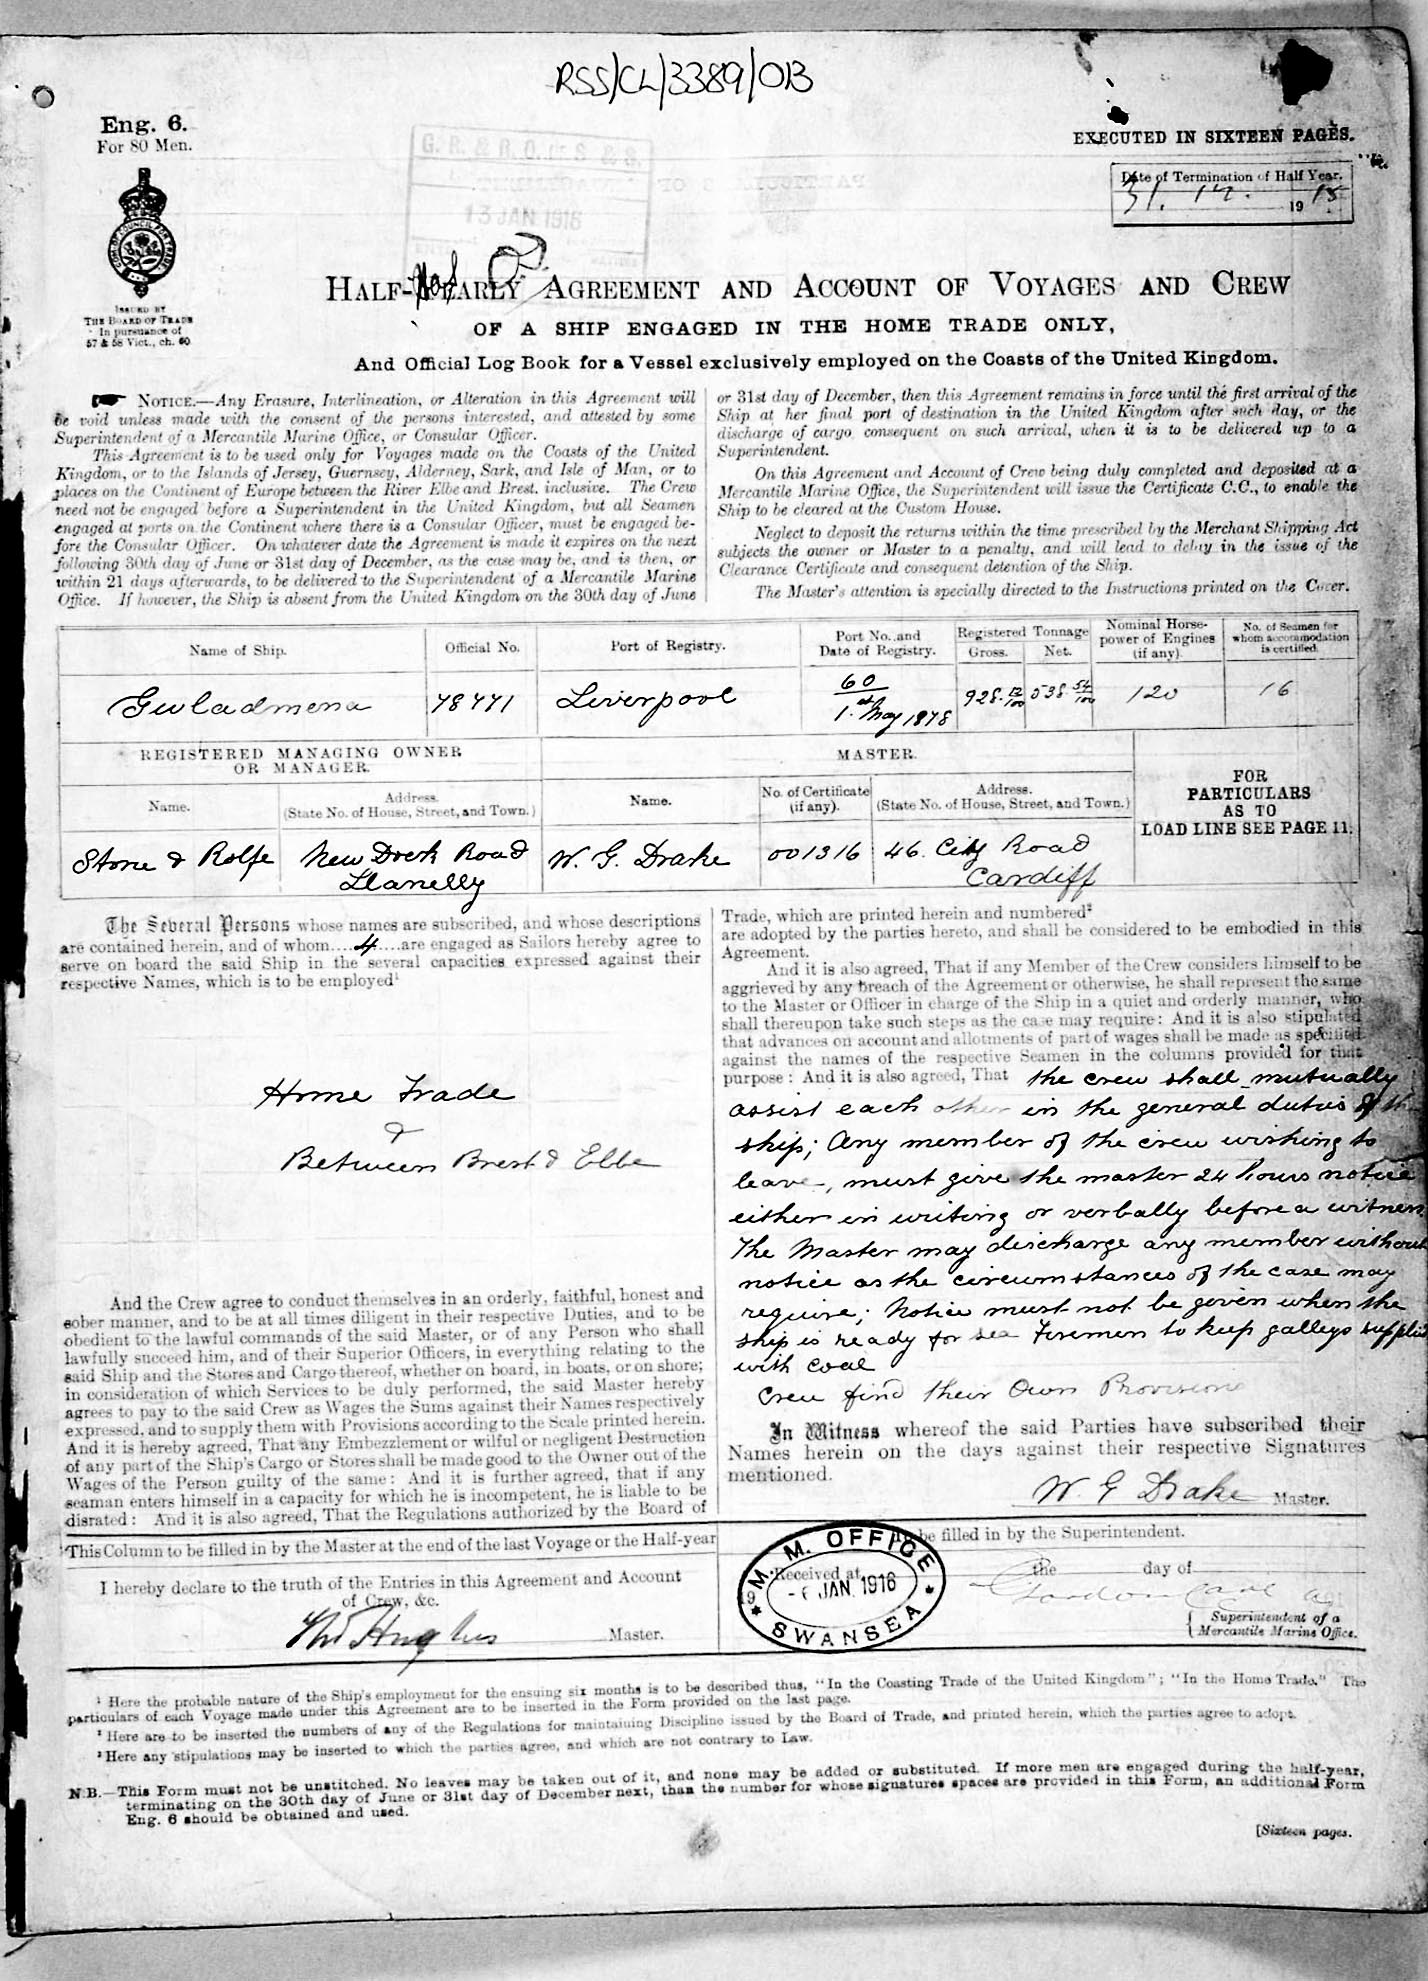 RSS/CL/3389/013
Eng. 6.
For 80 Men.
EXECUTED IN SIXTEEN PAGES.
Date of Termination of Half Year.
31. 12. 1915
G. R. & R. O. of S & S.
13 JAN 1916
ISSUED BY
THE BOARD OF TRADE
In pursuance of
57 & 58 Vict., ch. 60
HALF-YEARLY AGREEMENT AND ACCOUNT OF VOYAGES AND CREW
OF A SHIP ENGAGED IN THE HOME TRADE ONLY,
And Official Log Book for a Vessel exclusively employed on the Coasts of the United Kingdom.
NOTICE.—Any Erasure, Interlineation, or Alteration in this Agreement will
be void unless made with the consent of the persons interested, and attested by some
Superintendent of a Mercantile Marine Office, or Consular Officer.
This Agreement is to be used only for Voyages made on the Coasts of the United
Kingdom, or to the Islands of Jersey, Guernsey, Alderney, Sark, and Isle of Man, or to
places on the Continent of Europe between the River Elbe and Brest, inclusive. The Crew
need not be engaged before a Superintendent in the United Kingdom, but all Seamen
engaged at ports on the Continent where there is a Consular Officer, must be engaged be-
fore the Consular Officer. On whatever date the Agreement is made it expires on the next
following 30th day of June or 31st day of December, as the case may be, and is then, or
within 21 days afterwards, to be delivered to the Superintendent of a Mercantile Marine
Office. If however, the Ship is absent from the United Kingdom on the 30th day of June
or 31st day of December, then this Agreement remains in force until the first arrival of the
Ship at her final port of destination in the United Kingdom after such day, or the
discharge of cargo consequent on such arrival, when it is to be delivered up to a
Superintendent.
On this Agreement and Account of Crew being duly completed and deposited at a
Mercantile Marine Office, the Superintendent will issue the Certificate C.C., to enable the
Ship to be cleared at the Custom House.
Neglect to deposit the returns within the time prescribed by the Merchant Shipping Act
subjects the owner or Master to a penalty, and will lead to delay in the issue of the
Clearance Certificate and consequent detention of the Ship.
The Master's attention is specially directed to the Instructions printed on the Cover.
Name of Ship. Official No. Port of Registry. Port No. and Date of Registry. Registered Tonnage Gross. Net. Nominal Horse-power of Engines (if any). No. of Seamen for whom accommodation is certified.
Gwladmena 78771 Liverpool 60 1st May 1878 928 12/100 538 54/100 120 16
REGISTERED MANAGING OWNER OR MANAGER. MASTER.
Name. Address. (State No. of House, Street, and Town.) Name. No. of Certificate (if any). Address. (State No. of House, Street, and Town.)
FOR
PARTICULARS
AS TO
LOAD LINE SEE PAGE 11.
Stone & Rolfe New Dock Road Llanelly W. G. Drake 001316 46. City Road Cardiff
The Several Persons whose names are subscribed, and whose descriptions
are contained herein, and of whom....4....are engaged as Sailors hereby agree to
serve on board the said Ship in the several capacities expressed against their
respective Names, which is to be employed¹
Home Trade
&
Between Brest & Elbe
And the Crew agree to conduct themselves in an orderly, faithful, honest and
sober manner, and to be at all times diligent in their respective Duties, and to be
obedient to the lawful commands of the said Master, or of any Person who shall
lawfully succeed him, and of their Superior Officers, in everything relating to the
said Ship and the Stores and Cargo thereof, whether on board, in boats, or on shore;
in consideration of which Services to be duly performed, the said Master hereby
agrees to pay to the said Crew as Wages the Sums against their Names respectively
expressed, and to supply them with Provisions according to the Scale printed herein.
And it is hereby agreed, That any Embezzlement or wilful or negligent Destruction
of any part of the Ship's Cargo or Stores shall be made good to the Owner out of the
Wages of the Person guilty of the same: And it is further agreed, that if any
seaman enters himself in a capacity for which he is incompetent, he is liable to be
disrated: And it is also agreed, That the Regulations authorized by the Board of
Trade, which are printed herein and numbered²
are adopted by the parties hereto, and shall be considered to be embodied in this
Agreement.
And it is also agreed, That if any Member of the Crew considers himself to be
aggrieved by any breach of the Agreement or otherwise, he shall represent the same
to the Master or Officer in charge of the Ship in a quiet and orderly manner, who
shall thereupon take such steps as the case may require: And it is also stipulated
that advances on account and allotments of part of wages shall be made as specified
against the names of the respective Seamen in the columns provided for that
purpose: And it is also agreed, That the crew shall mutually
assist each other in the general duties of the
ship; Any member of the crew wishing to
leave, must give the master 24 hours notice
either in writing or verbally before a witness
The Master may discharge any member without
notice as the circumstances of the case may
require; Notice must not be given when the
ship is ready for sea Firemen to keep galleys supplied
with coal
Crew find their Own Provisions
In Witness whereof the said Parties have subscribed their
Names herein on the days against their respective Signatures
mentioned.
W. G Drake Master.
This Column to be filled in by the Master at the end of the last Voyage or the Half-year
I hereby declare to the truth of the Entries in this Agreement and Account
of Crew, &c.
Thos Hughes Master.
To be filled in by the Superintendent.
Received at the day of
19
M. M. OFFICE
-6 JAN. 1916
SWANSEA
Superintendent of a
Mercantile Marine Office.
¹ Here the probable nature of the Ship's employment for the ensuing six months is to be described thus, "In the Coasting Trade of the United Kingdom"; "In the Home Trade." The
particulars of each Voyage made under this Agreement are to be inserted in the Form provided on the last page.
² Here are to be inserted the numbers of any of the Regulations for maintaining Discipline issued by the Board of Trade, and printed herein, which the parties agree to adopt.
³ Here any stipulations may be inserted to which the parties agree, and which are not contrary to Law.
N.B.—This Form must not be unstitched. No leaves may be taken out of it, and none may be added or substituted. If more men are engaged during the half-year,
terminating on the 30th day of June or 31st day of December next, than the number for whose signatures spaces are provided in this Form, an additional Form
Eng. 6 should be obtained and used.
[Sixteen pages.